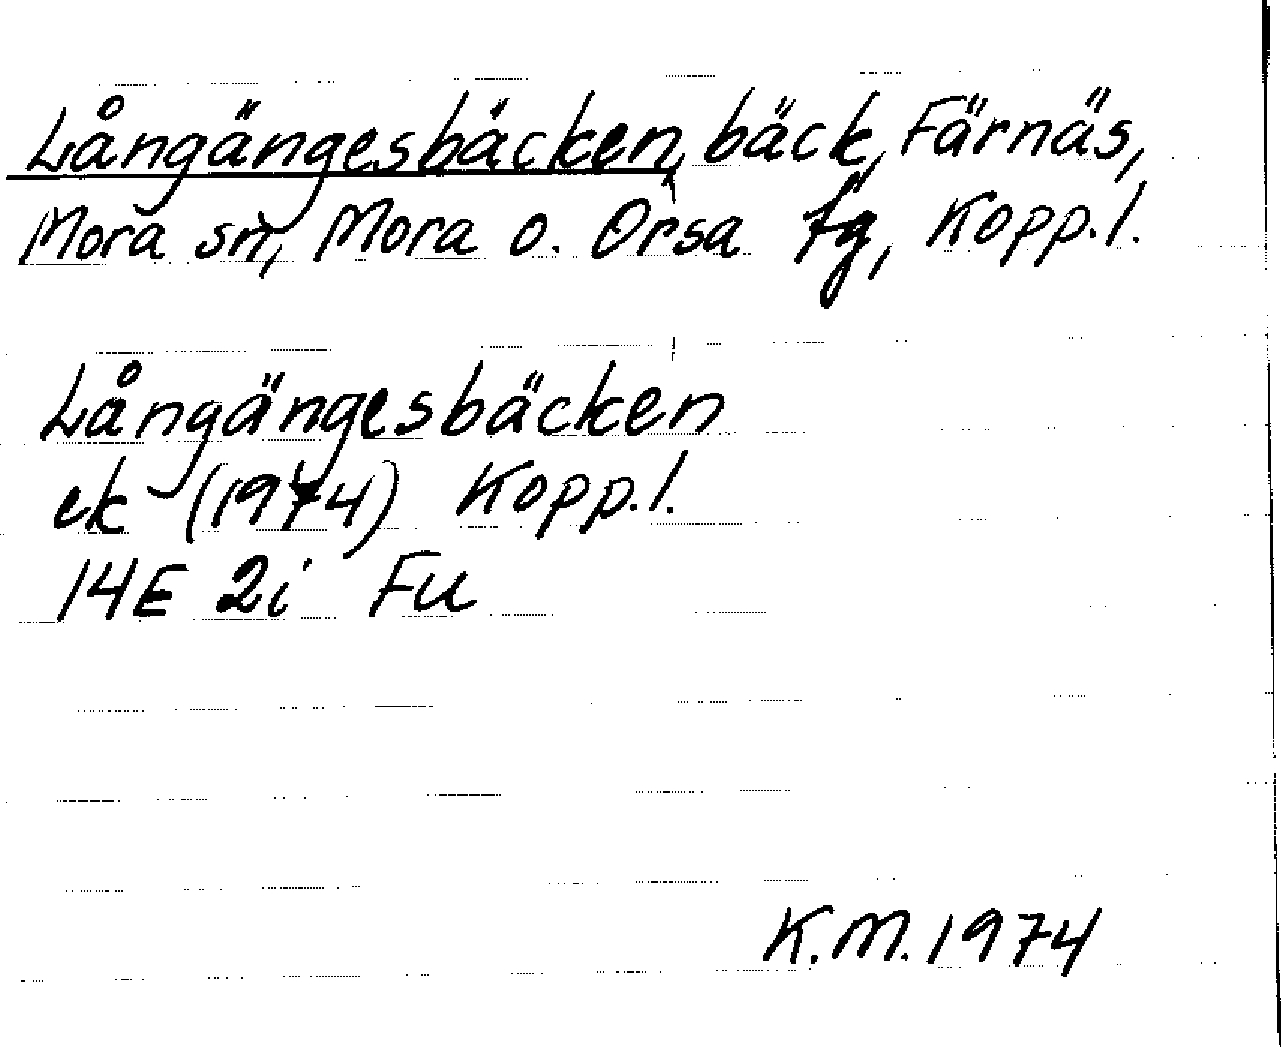 Långängesbäcken, bäck, Färnäs,
Mora sn, Mora o. Orsa fg, Kopp.l.
Långängesbäcken
ek (1974) Kopp.l.
14E 2i FU
K.M. 1974